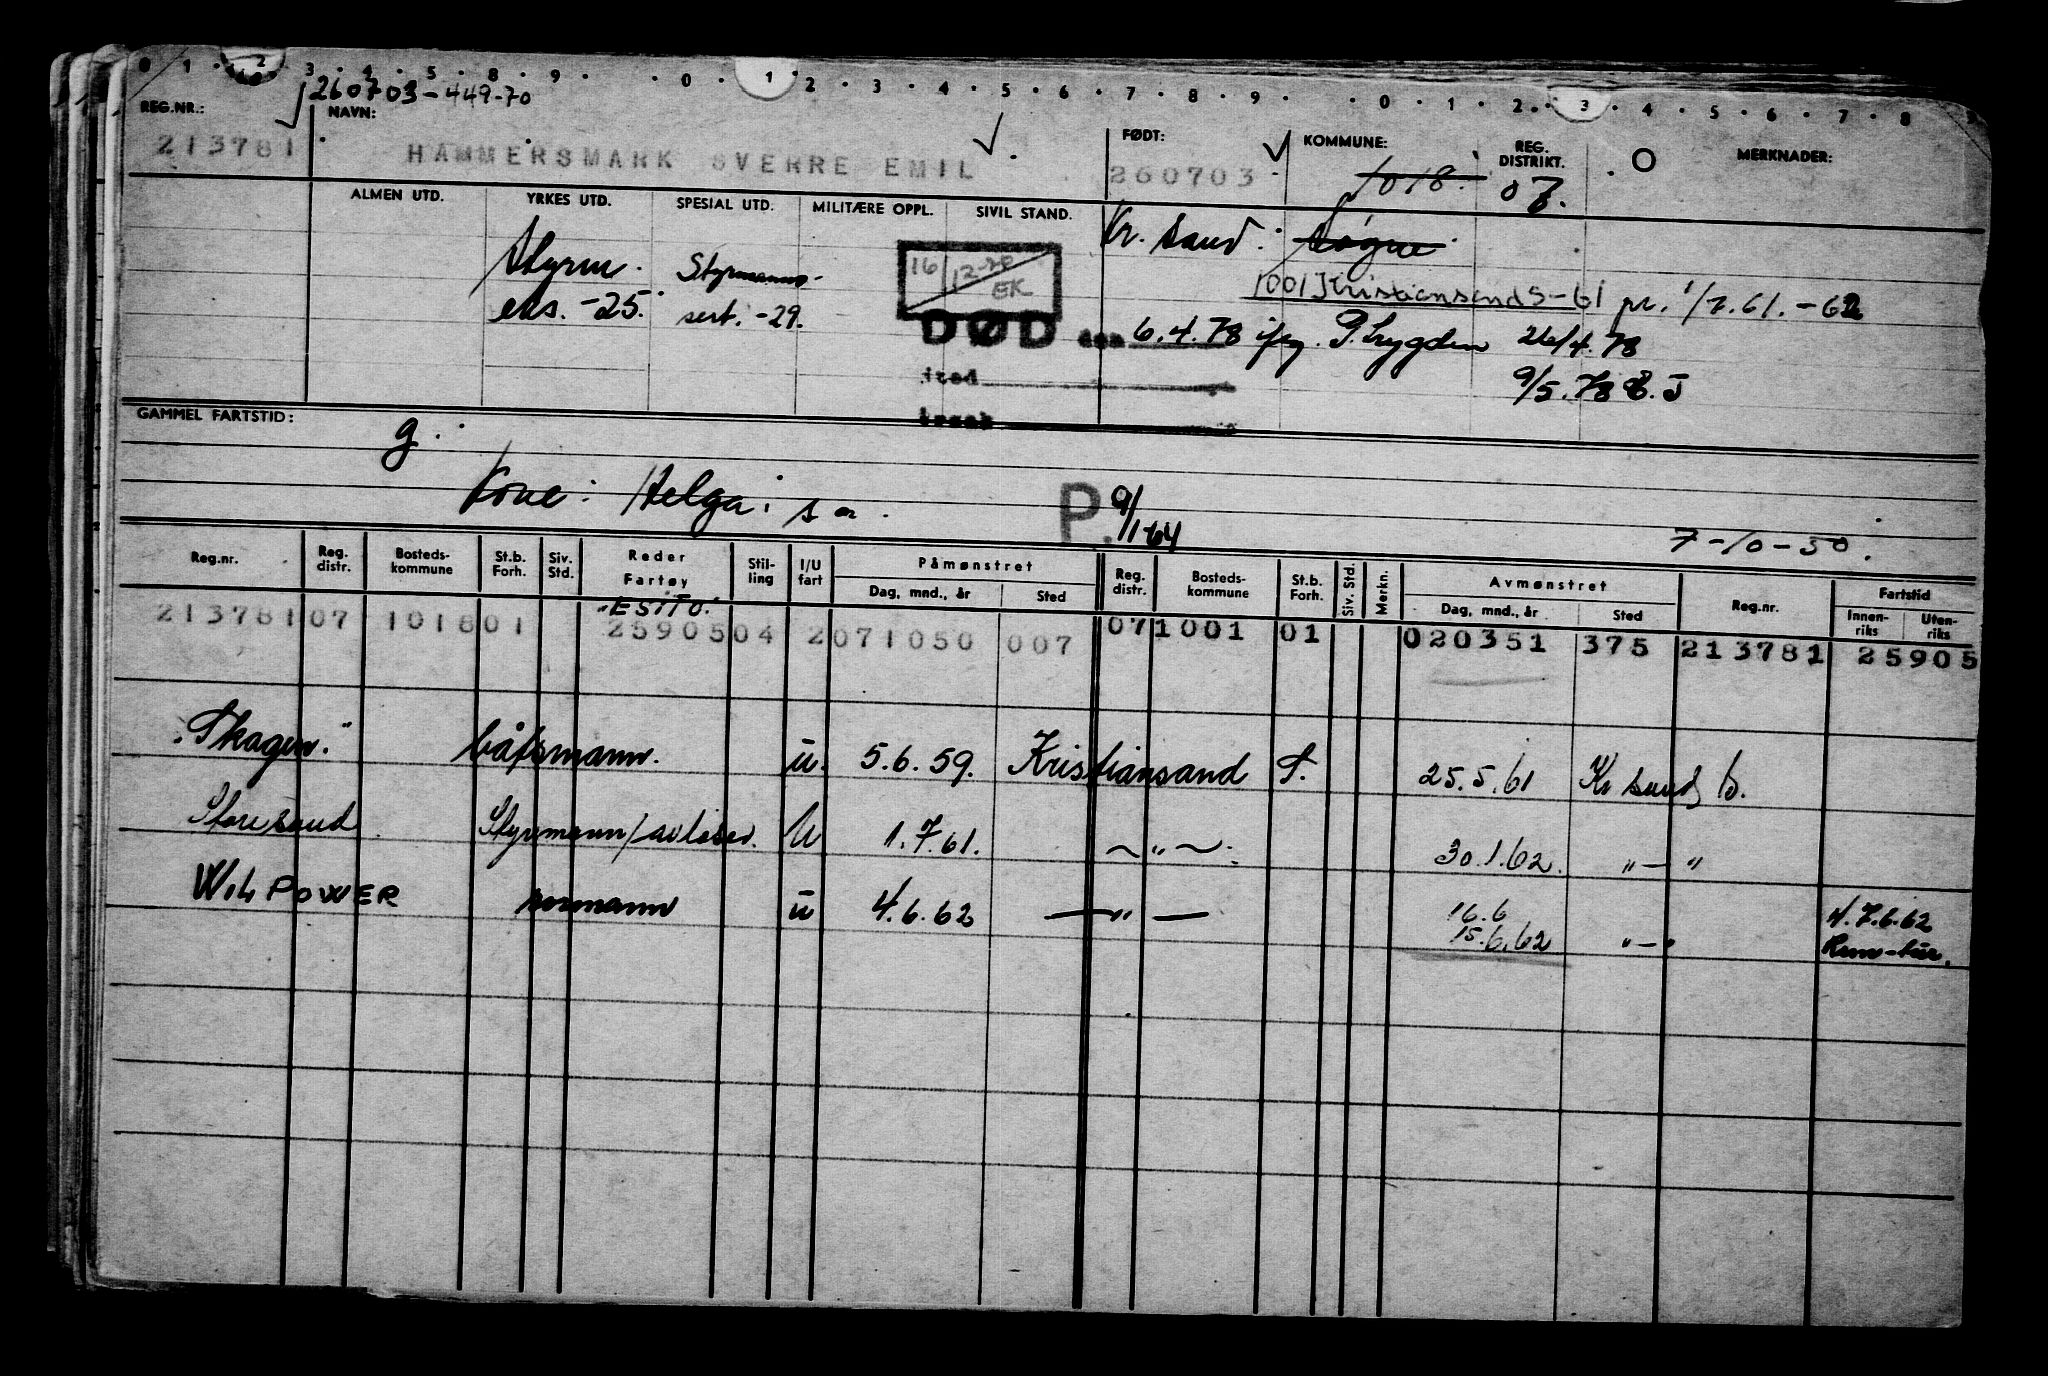 0 1 2 3 4 5 8 9 0 1 2 3 4 5 6 7 8 9 0 1 2 3 4 5 6 7 8 9
260703-449-70
REG.NR.: NAVN: FØDT: KOMMUNE: REG. DISTRIKT. O MERKNADER:
213781 HAMMERSMARK SVERRE EMIL 260703 1018. 07.
ALMEN UTD. YRKES UTD. SPESIAL UTD. MILITÆRE OPPL. SIVIL STAND.
Kr. sand. Søgne
Styrm. eks. -25. Styrmanns- sert. -29.
16/12-70 EK
1001 Kristiansand S-61 pr. 1/7.61.-62
DØD den 6.4.78 ifg. P. Lrygden 26/4.78
sted
9/5.78 E.J
årsak
GAMMEL FARTSTID:
g.
Kone: Helga. s a.
P. 9/1-64
7-10-50.
Reg.nr. Reg. distr. Bosteds-kommune St.b. Forh. Siv. Std. Reder Fartøy Stil-ling I/U fart Påmønstret Dag, mnd., år Sted Reg. distr. Bosteds-kommune St.b. Forh. Siv. Std. Merkn. Avmønstret Dag, mnd., år Sted Reg.nr. Fartstid Innen-riks Uten-riks
"ESITO."
213781 07 1018 01 25905 04 2 071050 007 07 1001 01 020351 375 213781 25905
"Skagen." båtsmann. u. 5.6.59. Kristiansand S. 25.5.61 Kr sand S.
Storesund Styrmann/avløser. U 1.7.61. — " — 30.1.62. " — "
Wil POWER normann u 4.6.62 — " — 16.6
15.6.62 " — " 4.7.6.62
Rem-tur.